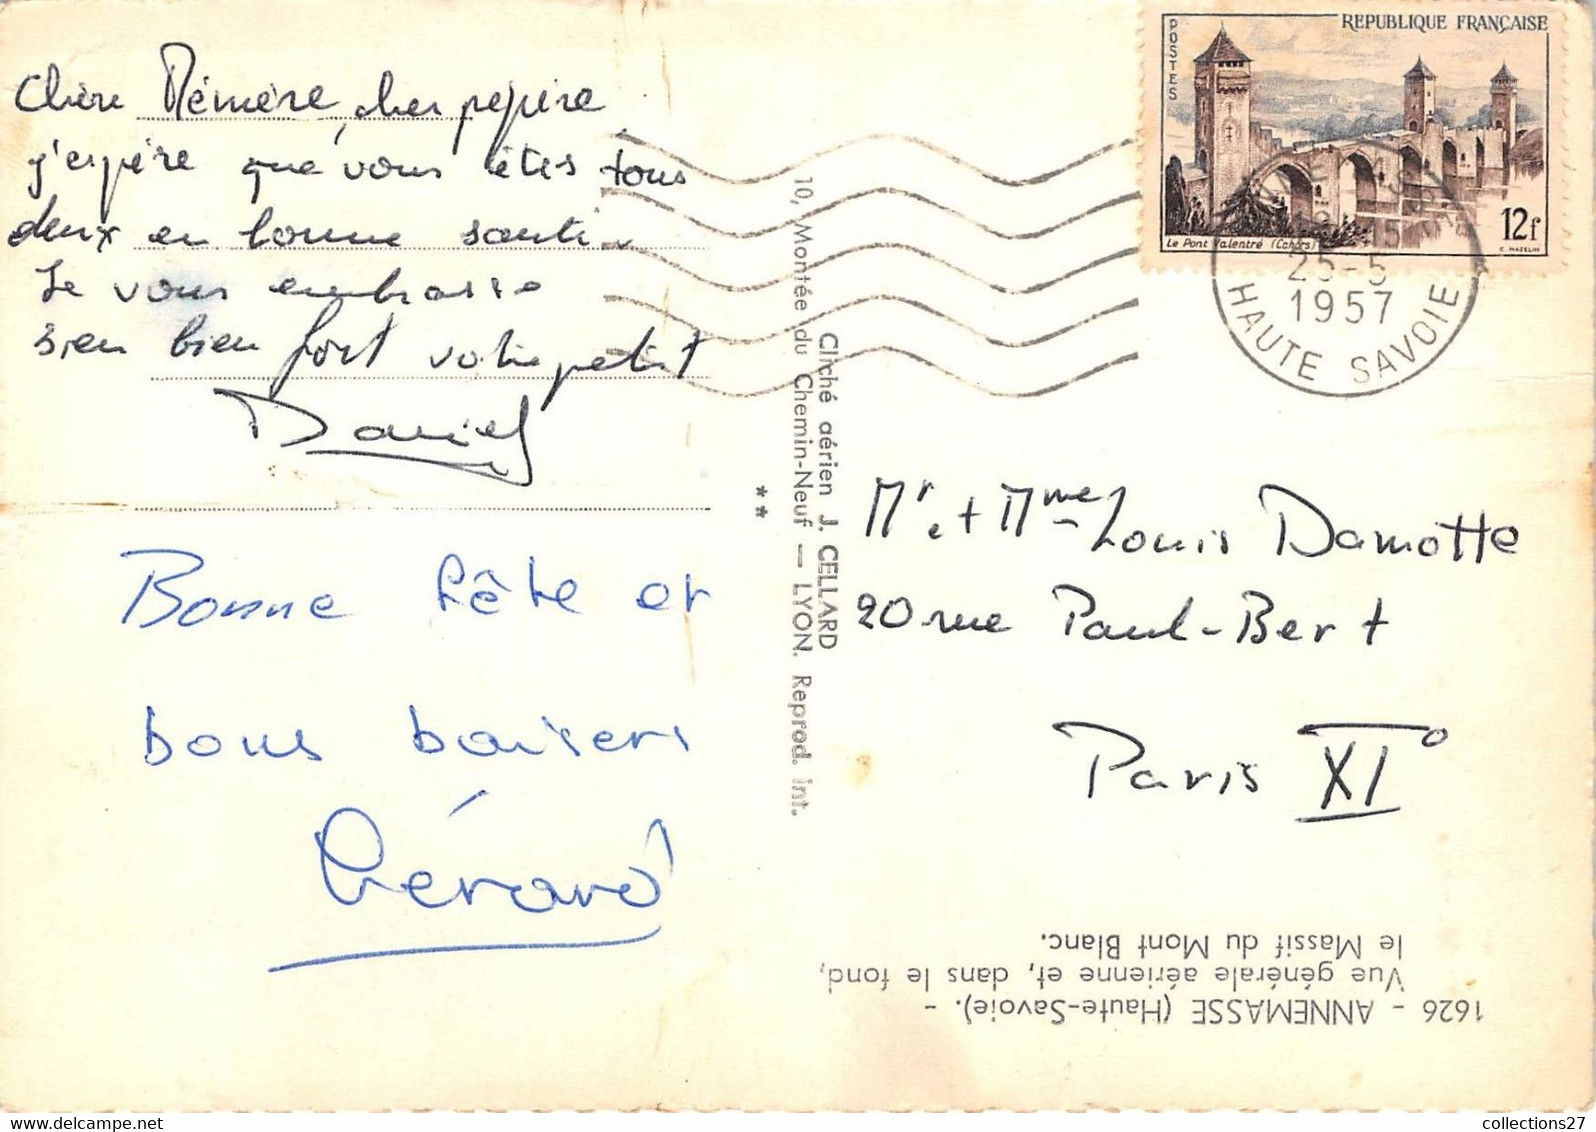 Chère Mémère, cher pépère
j'espère que vous êtes tous
deux en bonne santé.
Je vous embrasse
bien bien fort votre petit
Daniel
Bonne fête et
bons baisers
Gérard
Cliché aérien J. CELLARD
10, Montée du Chemin-Neuf — LYON. Reprod. int.
**
REPUBLIQUE FRANÇAISE
POSTES
12f
Le Pont Valentré (Cahors)
C. MAZELIN
25-5
1957
HAUTE SAVOIE
Mr et Mme Louis Damotte
20 rue Paul-Bert
Paris XI°
1626 - ANNEMASSE (Haute-Savoie). -
Vue générale aérienne et, dans le fond,
le Massif du Mont Blanc.
collections27